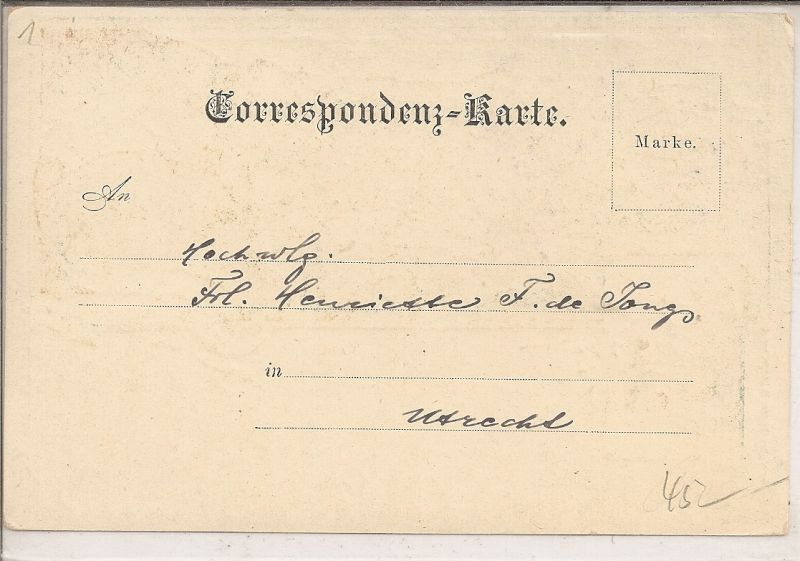 1
Correspondenz-Karte.
Marke.
An
Hochwlg.
Frl. Henriette F. de Jong
in
Utrecht
45